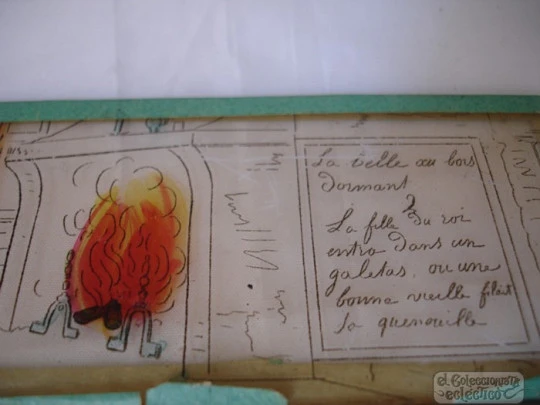 La belle au bois
Dormant
2
La fille du roi
entra dans un
galetas, ou une
bonne vieille filait
sa quenouille
el Coleccionista
ecléctico